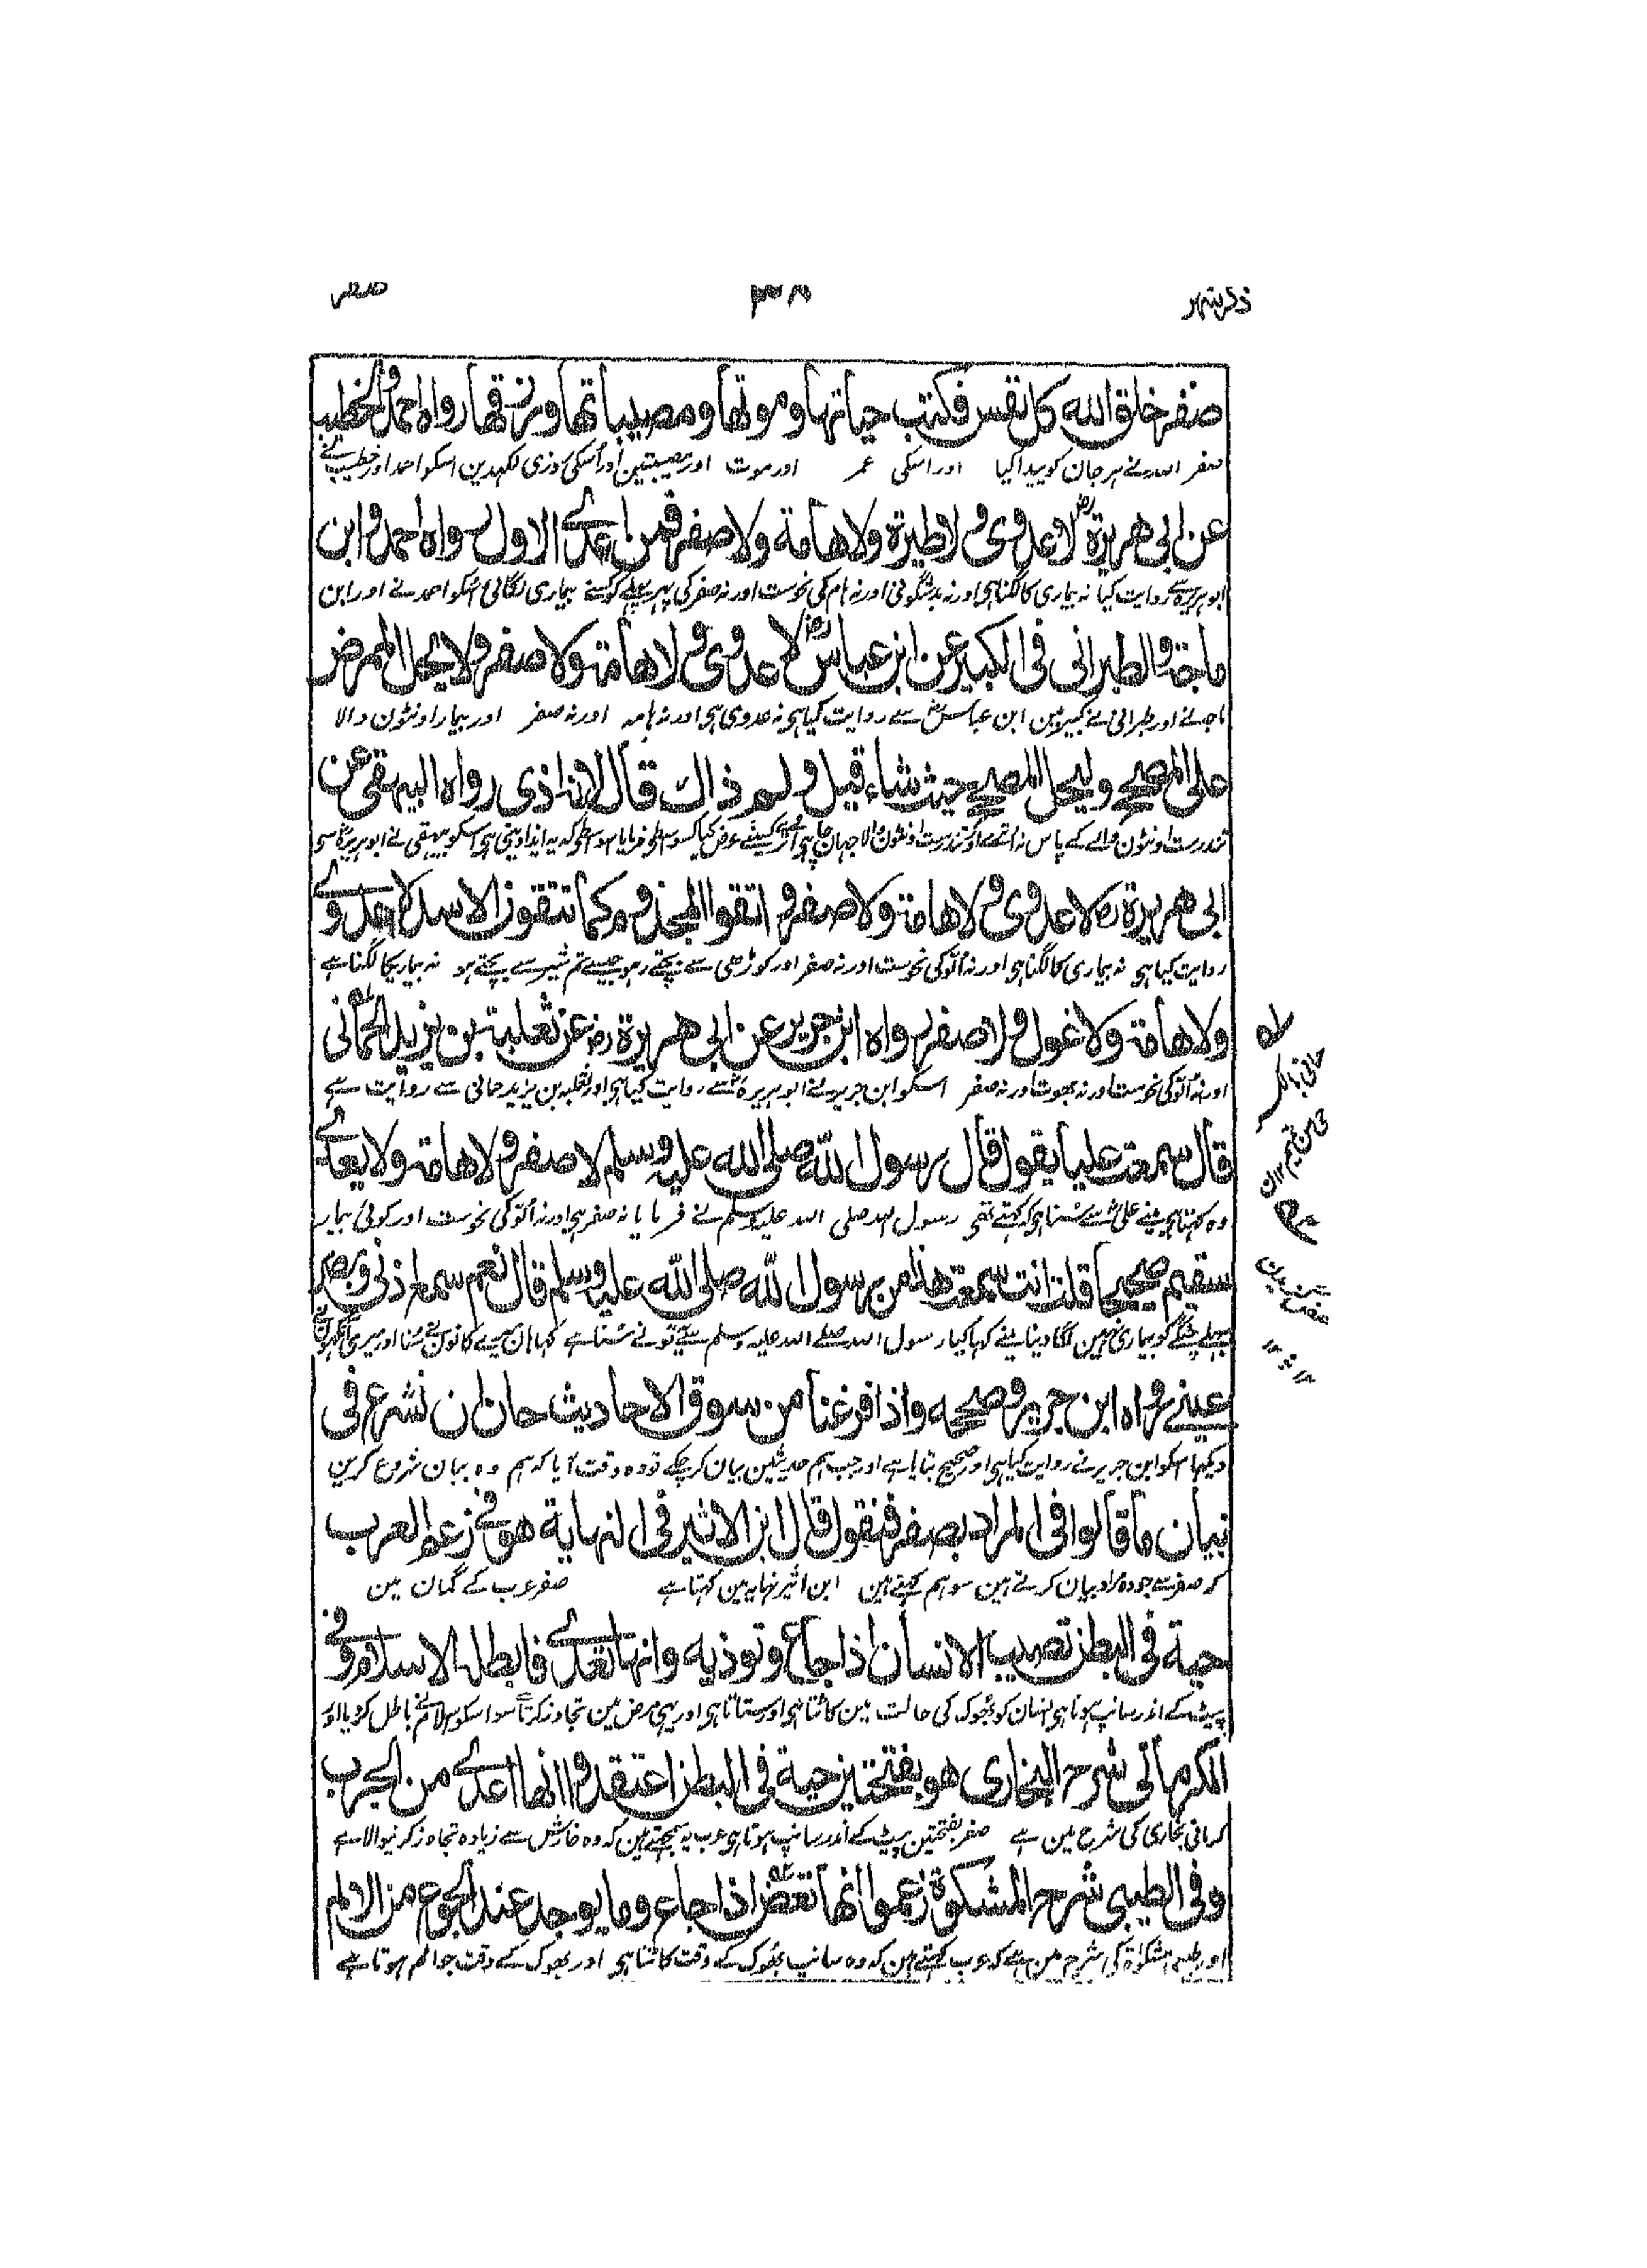 ذکر شہر ۳۸ صفر
صفر خلق الله كل نفس فكتب حياتها وموتها ومصيباتها ورزقها رواه احمد والخطيب
صفر اللہ نے ہر جان کو پیدا کیا اور اسکی عمر اور موت اور مصیبتیں اور اسکی روزی لکھدین اسکو احمد اور خطیب نے
عن ابی هریرة رض لا عدوی ولا طیرة ولا هامة ولا صفر فمن اعدے الاول رواه احمد وابن
ابو ہریرہ سے روایت کیا نہ بیماری کا لگنا ہی اور نہ بدشگونی اور نہ ہام کی نحوست اور نہ صفر کی پہر پہلے کو کسنے بیماری لگائی اسکو احمد نے اور ابن
ماجة والطبرانی فی الکبیر عن ابن عباس رض لا عدوی ولا هامة ولا صفر ولا یحل الممرض
ماجہ نے اور طبرانی نے کبیر مین ابن عباس رض سے روایت کیا ہی نہ عدوی ہی اور نہ ہامہ اور نہ صفر اور بیمار اونٹون والا
علی المصح ولیحل المصح حیث شاء قیل ولم ذاك قال لانه اذی رواه البیهقی عن
تندرست اونٹون والے کے پاس نہ اترے اور تندرست اونٹون والا جہان چاہی اترے کسینے عرض کیا کسواسطی فرمایا اسواسطی کہ یہ ایذا دیتی ہی اسکو بیہقی نے ابو ہریرہ سی
ابی هریرة رض لا عدوی ولا هامة ولا صفر واتقوا المجذوم كما تتقون الاسد لا عدوے
روایت کیا ہی نہ بیماری کا لگنا ہی اور نہ الّو کی نحوست اور نہ صفر اور کوڑھی سے بچتے رہو جیسے تم شیر سے بچتے ہو نہ بیماری کا لگنا ہے
ولا هامة ولا غول ولا صفر رواه ابن جریر عن ابی هریرة رض عن ثعلبة بن یزید الحمانی
اور نہ الّو کی نحوست اور نہ بھوت اور نہ صفر اسکو ابن جریر نے ابو ہریرہ سے روایت کیا ہی اور ثعلبہ بن یزید حمانی سے روایت ہے
قال سمعت علیا یقول قال رسول الله صلی الله علیه وسلم لا صفر ولا هامة ولا یعدے
وہ کہتا ہی مینے علی سے سنا ہی کہ کہتے تھی رسول اللہ صلی اللہ علیہ وسلم نے فرمایا نہ صفر ہی اور نہ الّو کی نحوست اور کوئی بیمار
سقیم صحیحا قلت انت سمعت هذا من رسول الله صلی الله علیه وسلم قال نعم سمع اذنی وبصر
بھلے چنگے کو بیماری نہین لگا دیتا مینے کہا کیا رسول اللہ صلے اللہ علیہ وسلم سے تونے سنا ہے کہا ہان میرے کانون نے سنا اور میری آنکھون نے
عینے رواه ابن جریر وصححه واذا فرغنا من سوق الاحادیث حان ان نشرع فی
دیکھا اسکو ابن جریر نے روایت کیا ہی اور صحیح بتایا ہے اور جب ہم حدیثین بیان کر چکے تو وہ وقت آیا کہ ہم وہ بیان شروع کرین
بیان ما قالوا فی المراد بصفر فنقول قال ابن الاثیر فی النهایة هو فی زعم العرب
کہ صفر سے جو وہ مراد بیان کرتے ہین سو ہم کہتے ہین ابن اثیر نہایہ مین کہتا ہے صفر عرب کے گمان مین
حیة فی البطن تصیب الانسان اذا جاع وتوذیه وانها تعدے فابطل الاسلام وفی
پیٹ کے اندر سانپ ہوتا ہی انسان کو بھوک کی حالت مین کاٹتا ہی اور ستاتا ہی اور یہی مرض مین تجاوز کرتا ہے سو اسکو اسلام نے باطل کر دیا اور
الکرمانی شرح البخاری هو بفتحتین حیة فی البطن اعتقدوا انها اعدے من الجرب
کرمانی بخاری کی شرح مین ہے صفر بفتحتین پیٹ کے اندر سانپ ہوتا ہی عرب یہ سمجھتے ہین کہ وہ خارش سے زیادہ تجاوز کرنیوالا ہے
وفی الطیبی شرح المشکوة زعموا انها تعض اذا جاع وما یوجد عند الجوع من الالم
اور طیبی مشکوٰۃ کی شرح مین ہے کہ عرب کہتے ہین کہ وہ سانپ بھوک کے وقت کاٹتا ہی اور بھوک کے وقت جو الم ہوتا ہے